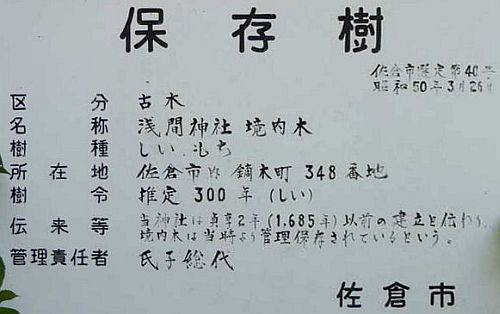 保存樹
佐倉市指定第40号
昭和50年3月26日
区分 古木
名称 浅間神社 境内木
樹種 しい、もち
所在地 佐倉市 鏑木町 348番地
樹令 推定 300年(しい)
伝来等 当神社は貞享2年(1,685年)以前の建立と伝わり、
境内木は当時より管理保存されているという。
管理責任者 氏子総代
佐倉市